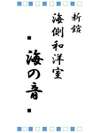 新館
海側和洋室
海の音